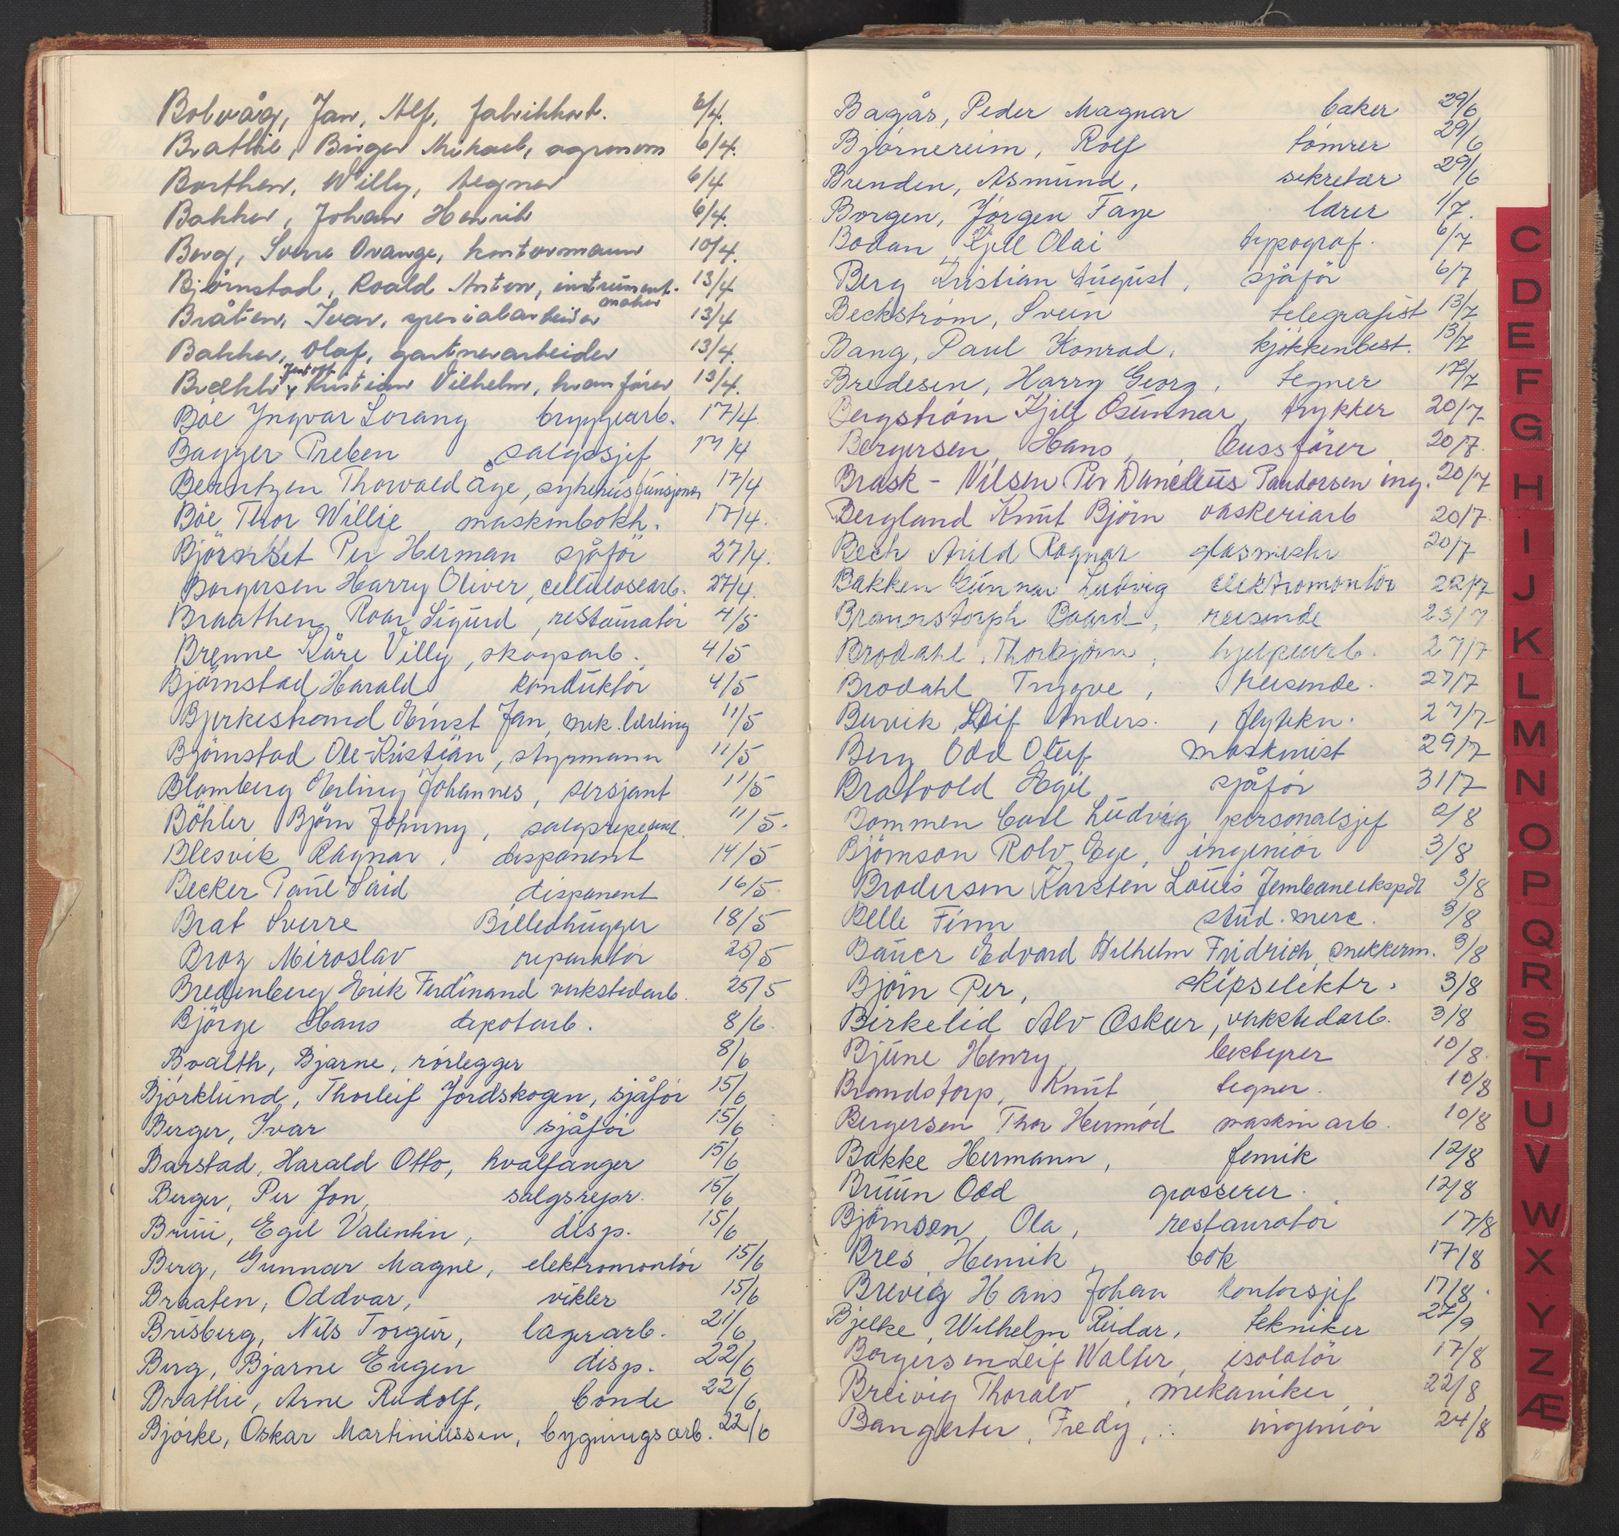 Bolvåg, Jan, Alf, fabrikkarb. 6/4.
Brathie, Birger Mikael, agronom 6/4.
Borthen, Willy, tegner 6/4
Bakker, Johan Henrik 6/4.
Berg, Sverre Orange, kontormann 10/4.
Björnstad, Roald Anton, instrument- maker 13/4
Bråten, Ivar, spesialarbeider 13/4
Bakken, Olaf, gartnerarbeider 13/4.
Kristian Vilhelm, kranförer 13/4.
Böe Yngvar Lorang bryggearb. 17/4
Bagger Preben salgssjef 17/4
Berntzen Thorvald Åge, sykehusfunsjonær 17/4
Böe Thor Willie maskinbokh. 17/4.
Björnset Per Herman sjåför 27/4.
Borgersen Harry Oliver, cellulosearb. 27/4.
Braathen Roar Sigurd, restauratör 4/5
Brenne Kåre Villy, skogsarb. 4/5
Björnstad Harald konduktör 4/5
Bjerkestrand Ernst Jan, mek. lærling 11/5
Björnstad Ole-Kristian, styrmann 11/5
Blomberg Erling Johannes, sersjant 11/5
Böhler Björn Johnny, salgsrepresent. 11/5.
Blesvik Ragnar, disponent 14/5
Becker Paul Said disponent 16/5.
Brat Sverre Billedhugger 18/5
Broz Miroslav reparatör 25/5
Bredenberg Erik Ferdinand verkstedarb. 25/5
Björge Hans depotarb. 8/6.
Bvalth, Bjarne, rörlegger 8/6
Björklund, Thorleif Jordskogen, sjåför 15/6
Berger, Ivar sjåför 15/6
Barstad, Harald Otto, hvalfanger 15/6
Berger, Per Jon, salgsrepr. 15/6
Bruu, Egil Valentin, disp. 15/6
Berg, Gunnar Magne, elektromontör 15/6
Braaten, Oddvar, vikler 15/6
Brisberg, Nils Torgur, lagerarb. 21/6
Berg, Bjarne Eugen disp. 22/6
Brathie, Arne Rudolf, bonde 22/6
Björke, Oskar Martiniussen, bygningsarb. 22/6
Bagås, Peder Magnar baker 29/6
Björnereim, Rolf tömrer 29/6
Brenden, Asmund, sekretær 29/6
Borgen, Jörgen Faye lærer 1/7.
Bodan Kjell Olai typograf. 6/7
Berg Kristian August, sjåför 6/7
Beckström, Svein telegrafist 13/7
Bang, Paul Konrad, kjökkenbest. 13/7
Bredesen, Harry Georg, tegner 17/7
Bergström Kjell Gunnar, trykker 20/7
Bergersen, Hans, bussförer, 20/7.
Brask - Nilsen Per Danelius Pandorsen ing. 20/7
Bergland Knut Björn vaskeriarb 20/7.
Bech Arild Ragnar glasmester 20/7
Bakken Gunnar Ludvig elektromontör 22/7
Braunstorph Baard, reisende 23/7
Brodahl, Thorbjörn, hjelpearb. 27/7
Brodahl Trygve, reisende. 27/7
Buvik, Leif Anders, flytekn. 27/7
Berg Odd Oluf maskinist 29/7
Bratvold Egil sjåför 31/7
Bommen Carl Ludvig personalsjef 2/8
Björnson Rolv Ege, ingeniör 3/8
Brodersen Karsten Louis Jernbaneekspdt 3/8
Belle Finn stud. merc. 3/8
Bauer Edvard Wilhelm Fridrich, snekkerm. 3/8
Björn Per, skipselektr. 3/8
Birkelid Alv Oskar, verkstedarb. 3/8
Bjune Henry bestyrer 10/8.
Brandstorp, Knut, tegner. 10/8
Bergersen Thor Hermod maskinarb. 10/8
Bakke Hermann, fenrik 12/8
Bruun Odd grosserer. 12/8
Björnsen Ola, restauratör 17/8
Bres, Henrik, kok 17/8
Brevig Hans Johan kontorsjef 17/8.
Bjelke, Wilhelm Reidar, tekniker 27/9
Borgersen Leif Walter, isolatör 17/8
Breivig Thoralv, mekaniker 22/8
Bangerter, Fredy, ingeniör 24/8
C
D
E
F
G
H
I
J
K
L
M
N
O
P
Q
R
S
T
U
V
W
X
Y
Z
Æ